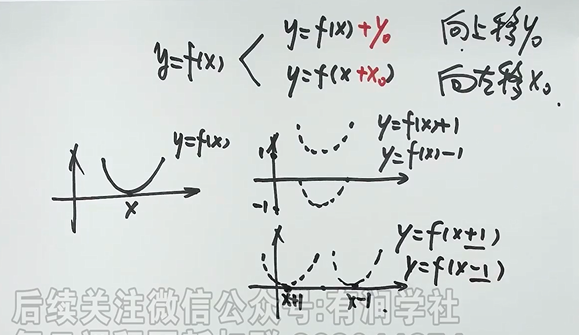 y=f(x)+y₀ 向上移y₀
y=f(x)
y=f(x+x₀) 向左移x₀.
y=f(x)
x
y=f(x)+1
y=f(x)-1
1
-1
y=f(x+1)
y=f(x-1)
x+1 x-1
后续关注微信公众号:有润学社